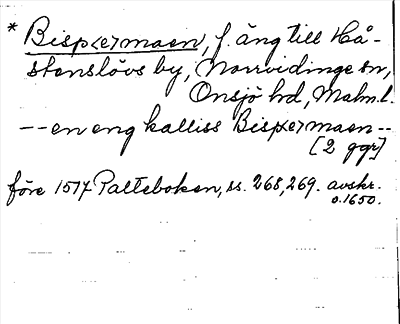 * Bisp<er>maen, f. äng till Hå-
stenslövs by, Norrvidinge sn,
Onsjö hd, Malm.l.
-- en eng kalliss Bisp<er>maen --
[2 ggr]
före 1517 Palteboken, ss. 268, 269. avskr.
o. 1650.